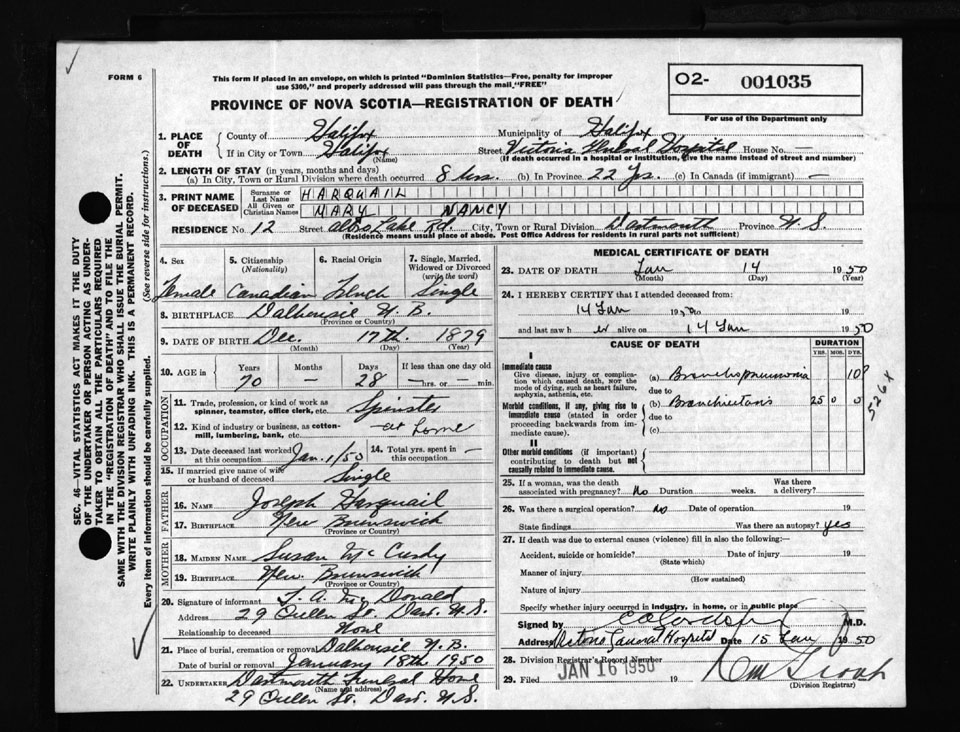 FORM 6
This form if placed in an envelope, on which is printed "Dominion Statistics—Free, penalty for improper
use $300," and properly addressed will pass through the mail, "FREE"
O2- 001035
For use of the Department only
PROVINCE OF NOVA SCOTIA—REGISTRATION OF DEATH
1. PLACE OF DEATH County of Halifax Municipality of Halifax
If in City or Town Halifax (Name) Street Victoria General Hospital House No. —
(If death occurred in a hospital or institution, give the name instead of street and number)
2. LENGTH OF STAY (in years, months and days)
(a) In City, Town or Rural Division where death occurred 8 hrs. (b) In Province 22 Yrs. (c) In Canada (if immigrant) —
3. PRINT NAME OF DECEASED Surname or Last Name HARQUAIL
All Given or Christian Names MARY NANCY
RESIDENCE No. 12 Street Lake Rd. City, Town or Rural Division Dartmouth Province N.S.
(Residence means usual place of abode. Post Office Address for residents in rural parts not sufficient)
4. Sex Female
5. Citizenship (Nationality) Canadian
6. Racial Origin French
7. Single, Married, Widowed or Divorced (write the word) Single
8. BIRTHPLACE Dalhousie N.B.
(Province or Country)
9. DATE OF BIRTH Dec. 17th. 1879
(Month) (Day) (Year)
10. AGE in Years 70 Months — Days 28 If less than one day old —hrs. or — min.
OCCUPATION
11. Trade, profession, or kind of work as spinner, teamster, office clerk, etc. Spinster
12. Kind of industry or business, as cotton-mill, lumbering, bank, etc. at home
13. Date deceased last worked at this occupation Jan. 1/50
14. Total yrs. spent in this occupation —
15. If married give name of wife or husband of deceased Single
FATHER
16. Name Joseph Harquail
17. Birthplace New Brunswick
(Province or Country)
MOTHER
18. MAIDEN NAME Susan McCurdy
19. BIRTHPLACE New Brunswick
(Province or Country)
20. Signature of informant Donald
Address 29 Queen St. Dart. N.S.
Relationship to deceased None
21. Place of burial, cremation or removal Dalhousie N.B.
Date of burial or removal January 18th 1950
22. UNDERTAKER Dartmouth Funeral Home
(Name and address)
29 Queen St. Dart. N.S.
MEDICAL CERTIFICATE OF DEATH
23. DATE OF DEATH Jan 14 1950
(Month) (Day) (Year)
24. I HEREBY CERTIFY that I attended deceased from:
14 Jan 1950 to 19
and last saw her alive on 14 Jan 1950
CAUSE OF DEATH DURATION
YRS. MOS. DYS.
I
Immediate cause
Give disease, injury or complication which caused death, NOT the mode of dying, such as heart failure, asphyxia, asthenia, etc.
(a) Bronchopneumonia 10?
due to
Morbid conditions, if any, giving rise to immediate cause (stated in order proceeding backwards from immediate cause).
(b) Bronchiectasis 25 0 0
due to
(c)
526 X
II
Other morbid conditions (if important) contributing to death but not causally related to immediate cause.
25. If a woman, was the death associated with pregnancy? No Duration weeks. Was there a delivery?
26. Was there a surgical operation? No Date of operation 19
State findings Was there an autopsy? yes
27. If death was due to external causes (violence) fill in also the following:—
Accident, suicide or homicide? Date of injury 19
(State which)
Manner of injury
(How sustained)
Nature of injury
Specify whether injury occurred in industry, in home, or in public place
Signed by M.D.
Address Victoria General Hospital Date 15 Jan 1950
28. Division Registrar's Record Number
29. Filed JAN 16 1950 19
(Division Registrar)
SEC. 46—VITAL STATISTICS ACT MAKES IT THE DUTY
OF THE UNDERTAKER OR PERSON ACTING AS UNDER-
TAKER TO OBTAIN ALL THE PARTICULARS REQUIRED
IN THE "REGISTRATION OF DEATH" AND TO FILE THE
SAME WITH THE DIVISION REGISTRAR WHO SHALL ISSUE THE BURIAL PERMIT.
WRITE PLAINLY WITH UNFADING INK. THIS IS A PERMANENT RECORD.
Every item of information should be carefully supplied. (See reverse side for instructions.)